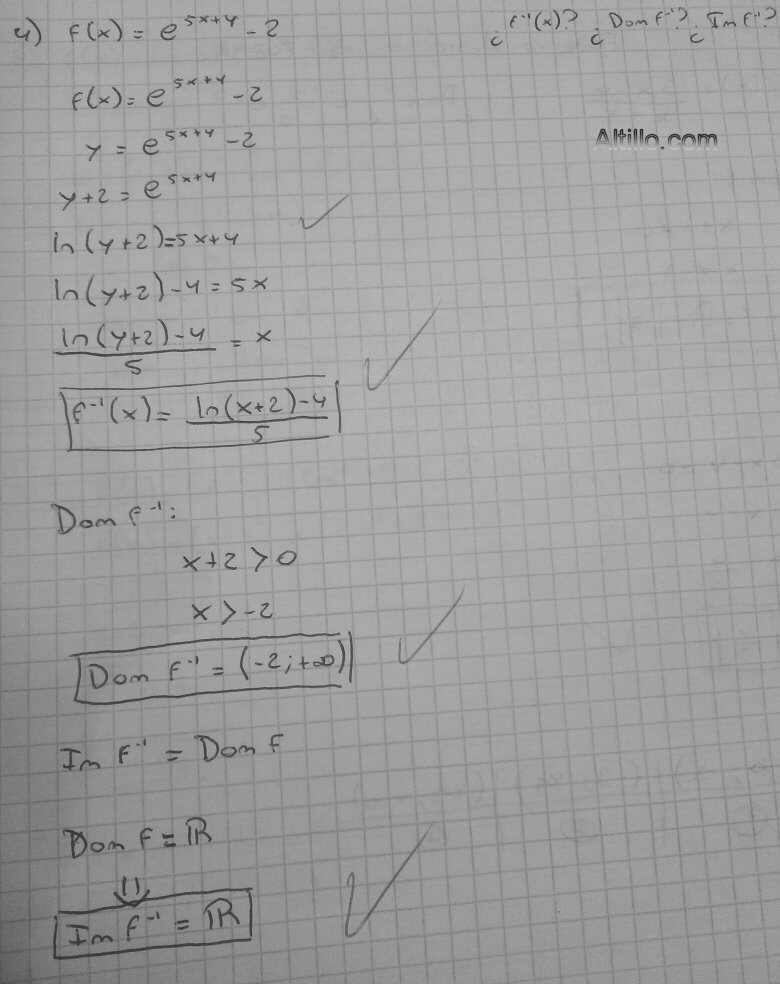 4) f(x) = e^{5x+4} - 2 ¿f⁻¹(x)? ¿Dom f⁻¹? ¿Im f⁻¹?
f(x) = e^{5x+4} - 2
Altillo.com
y = e^{5x+4} - 2
y+2 = e^{5x+4}
ln(y+2)=5x+4
ln(y+2)-4 = 5x
ln(y+2)-4 / 5 = x
f⁻¹(x) = ln(x+2)-4 / 5
Dom f⁻¹:
x+2 > 0
x > -2
Dom f⁻¹ = (-2;+∞)
Im f⁻¹ = Dom f
Dom f = ℝ
⇓
Im f⁻¹ = ℝ